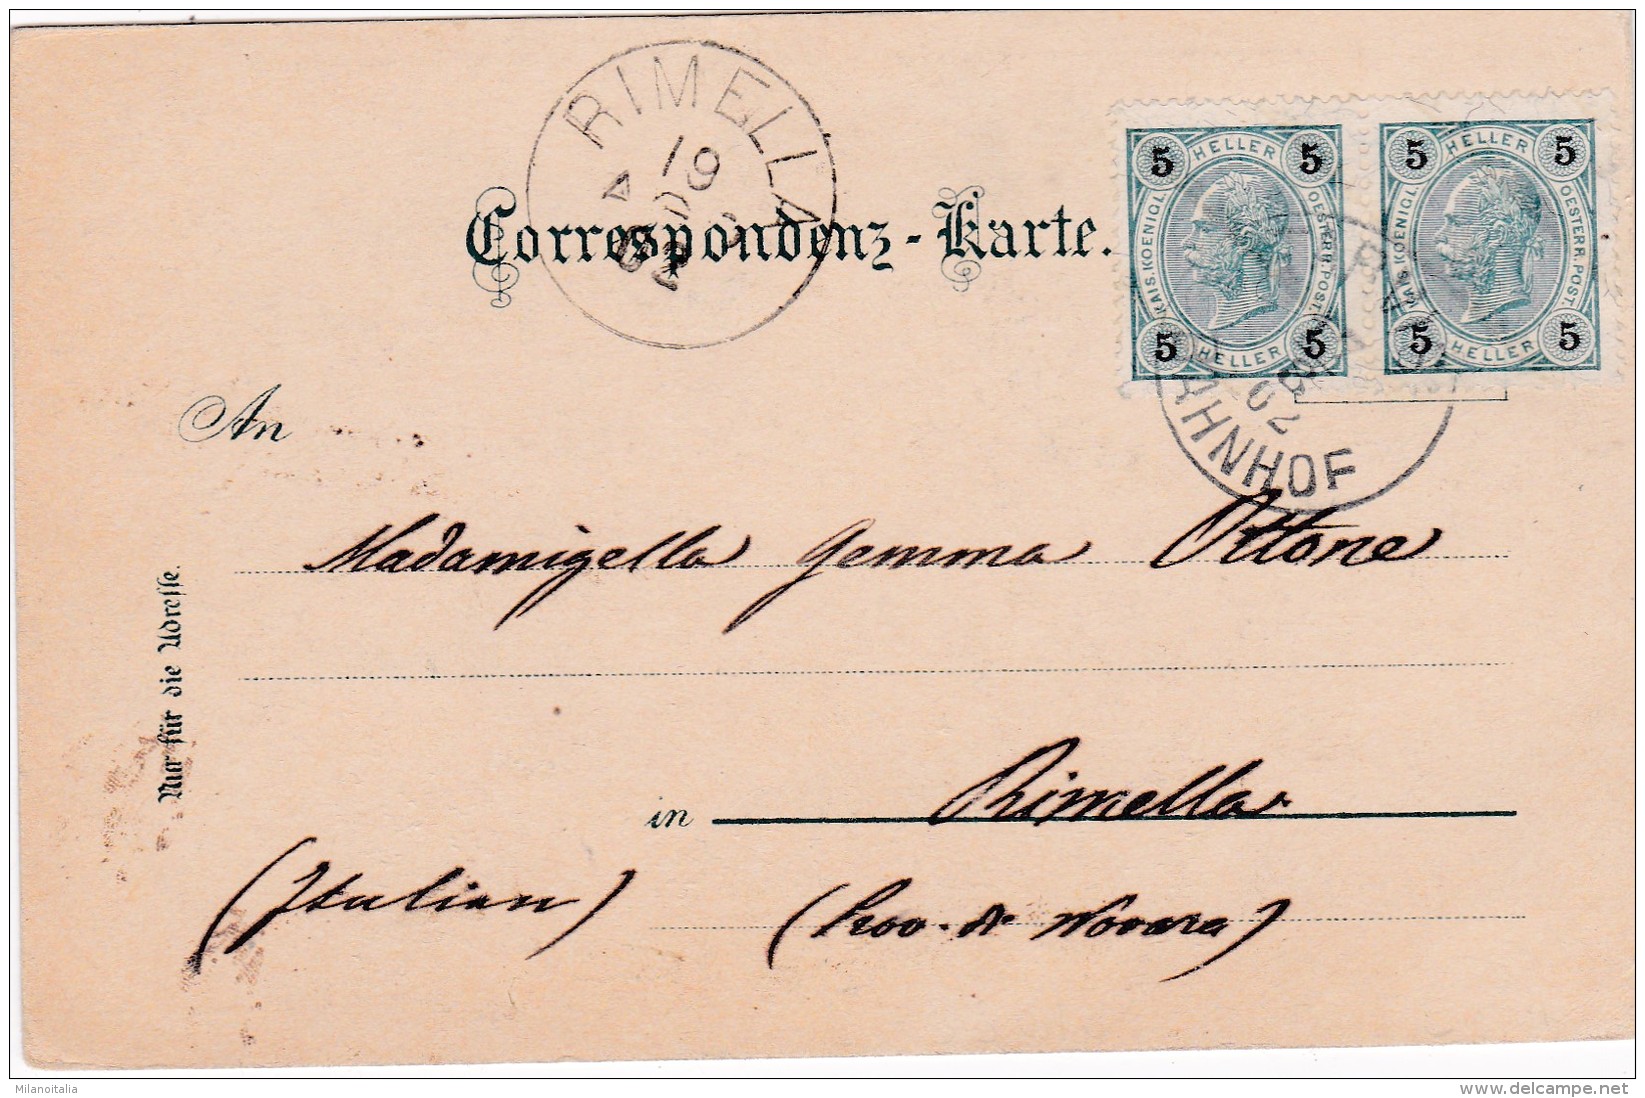 RIMELLA
19
02
Correspondenz-Karte.
5 HELLER 5
KAIS. KOENIGL. OESTERR. POST.
5 HELLER 5
5 HELLER 5
KAIS. KOENIGL. OESTERR. POST.
5 HELLER 5
02
AHNHOF
An
Madamigella Gemma Ottone
Nur für die Adresse.
in Rimella
(Italien) (Prov. di Novara)
Milanoitalia
www.delcampe.net